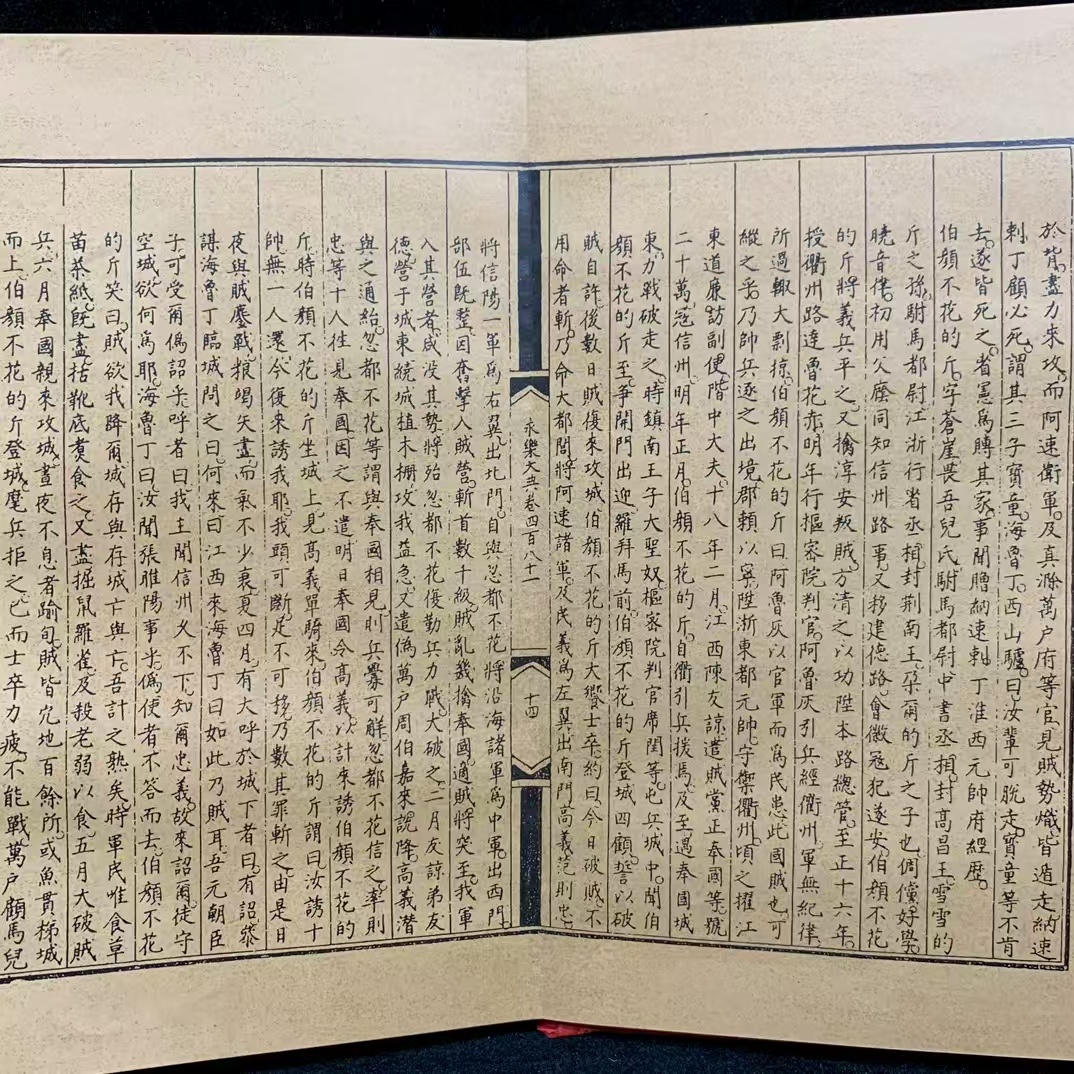 於背盡力來攻而阿速衛軍及真滁萬户府等官見賊勢熾皆遁走納速
剌丁顧必死謂其三子寶童海魯丁西山驢曰汝輩可脫走寶童等不肯
去遂皆死之省憲爲賻其家事聞贈納速剌丁淮西元帥府經歷
伯顏不花的斤字蒼崖畏吾兒氏駙馬都尉中書丞相封高昌王雪雪的
斤之孫駙馬都尉江浙行省丞相封荆南王朶爾的斤之子也倜儻好學
曉音律初用父廕同知信州路事又移建德路會徽冦犯遂安伯顏不花
的斤將義兵平之又擒淳安叛賊方清之以功陞本路總管至正十六年
授衢州路達魯花赤明年行樞宻院判官阿魯灰引兵經衢州軍無紀律
所過輙大剽掠伯顏不花的斤曰阿魯灰以官軍而爲民患此國賊也可
縱之乎乃帥兵逐之出境郡賴以寧陞浙東都元帥守禦衢州頃之擢江
東道廉訪副使階中大夫十八年二月江西陳友諒遣賊黨正奉國等號
二十萬冦信州明年正月伯顏不花的斤自衢引兵援焉及至遇奉國城
東力戰破走之時鎮南王子大聖奴樞宻院判官席閏等屯兵城中聞伯
顏不花的斤至爭開門出迎羅拜馬前伯顏不花的斤登城四顧誓以破
賊自許後數日賊復來攻城伯顏不花的斤大饗士卒約曰今日破賊不
用命者斬乃命大都閭將阿速諸軍及民義爲左翼出南門高義范則忠
永樂大典卷四百八十一
十四
將信陽一軍爲右翼出北門自與忽都不花將沿海諸軍爲中軍出西門
部伍旣整因奮擊入賊營斬首數千級賊亂幾擒奉國適賊將突至我軍
入其營者咸没其勢將殆忽都不花復勒兵力戰大破之二月友諒弟友
德營于城東繞城植木栅攻我益急又遣僞萬户周伯嘉來說降高義潛
與之通紿忽都不花等謂與奉國相見則兵釁可解忽都不花信之率則
忠等十人徃見奉國囚之不遣明日奉國令高義以計來誘伯顏不花的
斤時伯顏不花的斤坐城上見高義單騎來伯顏不花的斤謂曰汝誘十
帥無一人還今復來誘我耶我頭可斷足不可移乃數其罪斬之由是日
夜與賊鏖戰粮竭矢盡而氣不少衰夏四月有大呼於城下者曰有詔叅
謀海魯丁臨城問之曰何來曰江西來海魯丁曰如此乃賊耳吾元朝臣
子可受爾僞詔乎呼者曰我主聞信州久不下知爾忠義故來詔爾徒守
空城欲何爲耶海魯丁曰汝聞張睢陽事乎僞使者不答而去伯顏不花
的斤笑曰賊欲我降爾城存與存城亡與亡吾計之熟矣時軍民惟食草
苗茶紙旣盡括靴底煑食之又盡掘鼠羅雀及殺老弱以食五月大破賊
兵六月奉國親來攻城晝夜不息者踰旬賊皆穴地百餘所或魚貫梯城
而上伯顏不花的斤登城麾兵拒之已而士卒力疲不能戰萬户顧馬兒